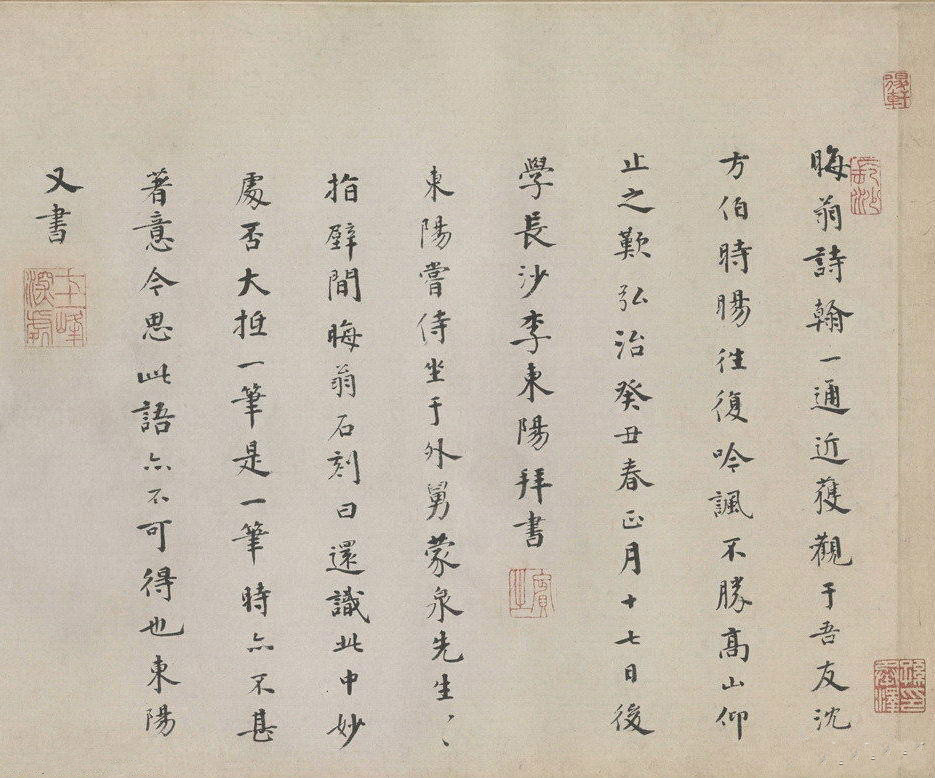 晦翁詩翰一通近獲觀于吾友沈
方伯時暘往復吟諷不勝高山仰
止之歎弘治癸丑春正月十七日後
學長沙李東陽拜書
東陽嘗侍坐于外舅蒙泉先生〻〻
指壁間晦翁石刻曰還識此中妙
處否大抵一筆是一筆時亦不甚
著意今思此語亦不可得也東陽
又書